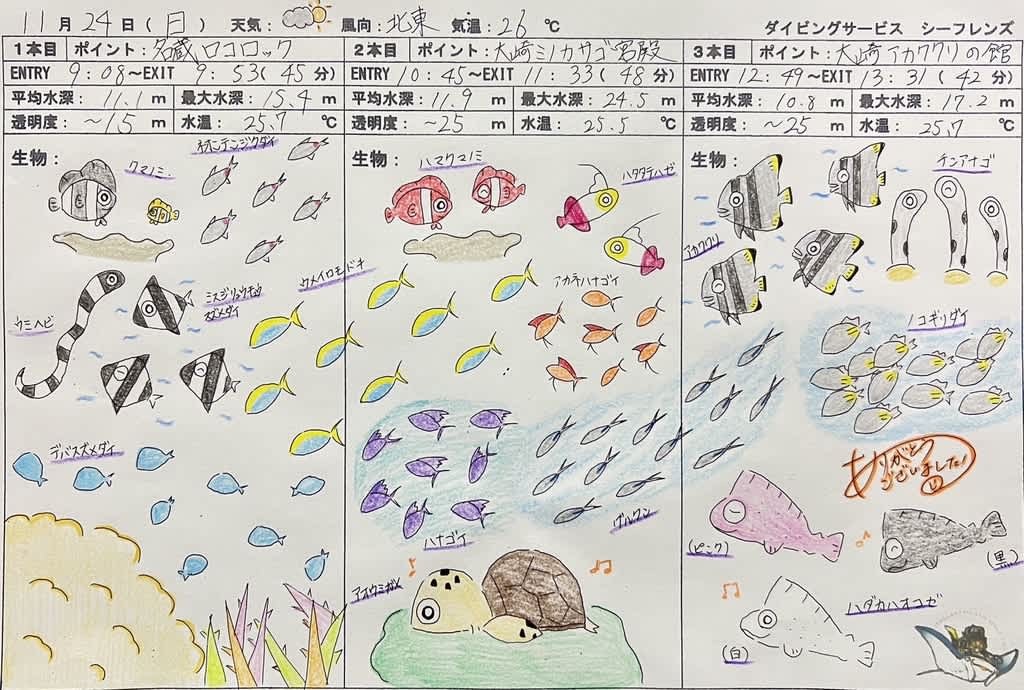 11月24日(日) 天気: 風向:北東 気温:26℃ ダイビングサービス シーフレンズ
1本目 ポイント:名蔵ロコロック
ENTRY 9:08〜EXIT 9:53(45分)
平均水深:11.1m 最大水深:15.4m
透明度:〜15m 水温:25.7℃
生物:
クマノミ
ウミヘビ
ミスジリュウキュウ
スズメダイ
ウメイロモドキ
デバスズメダイ
2本目 ポイント:大崎ミノカサゴ宮殿
ENTRY 10:45〜EXIT 11:33(48分)
平均水深:11.9m 最大水深:24.5m
透明度:〜25m 水温:25.5℃
生物:
ハマクマノミ
ハタタテハゼ
アカネハナゴイ
ハナゴイ
グルクン
アオウミガメ
3本目 ポイント:大崎アカククリの館
ENTRY 12:49〜EXIT 13:31(42分)
平均水深:10.8m 最大水深:17.2m
透明度:〜25m 水温:25.7℃
生物:
チンアナゴ
アカククリ
ノコギリダイ
ありがとう
ございました!
(ピンク)
(黒)
ハダカハオコゼ
(白)